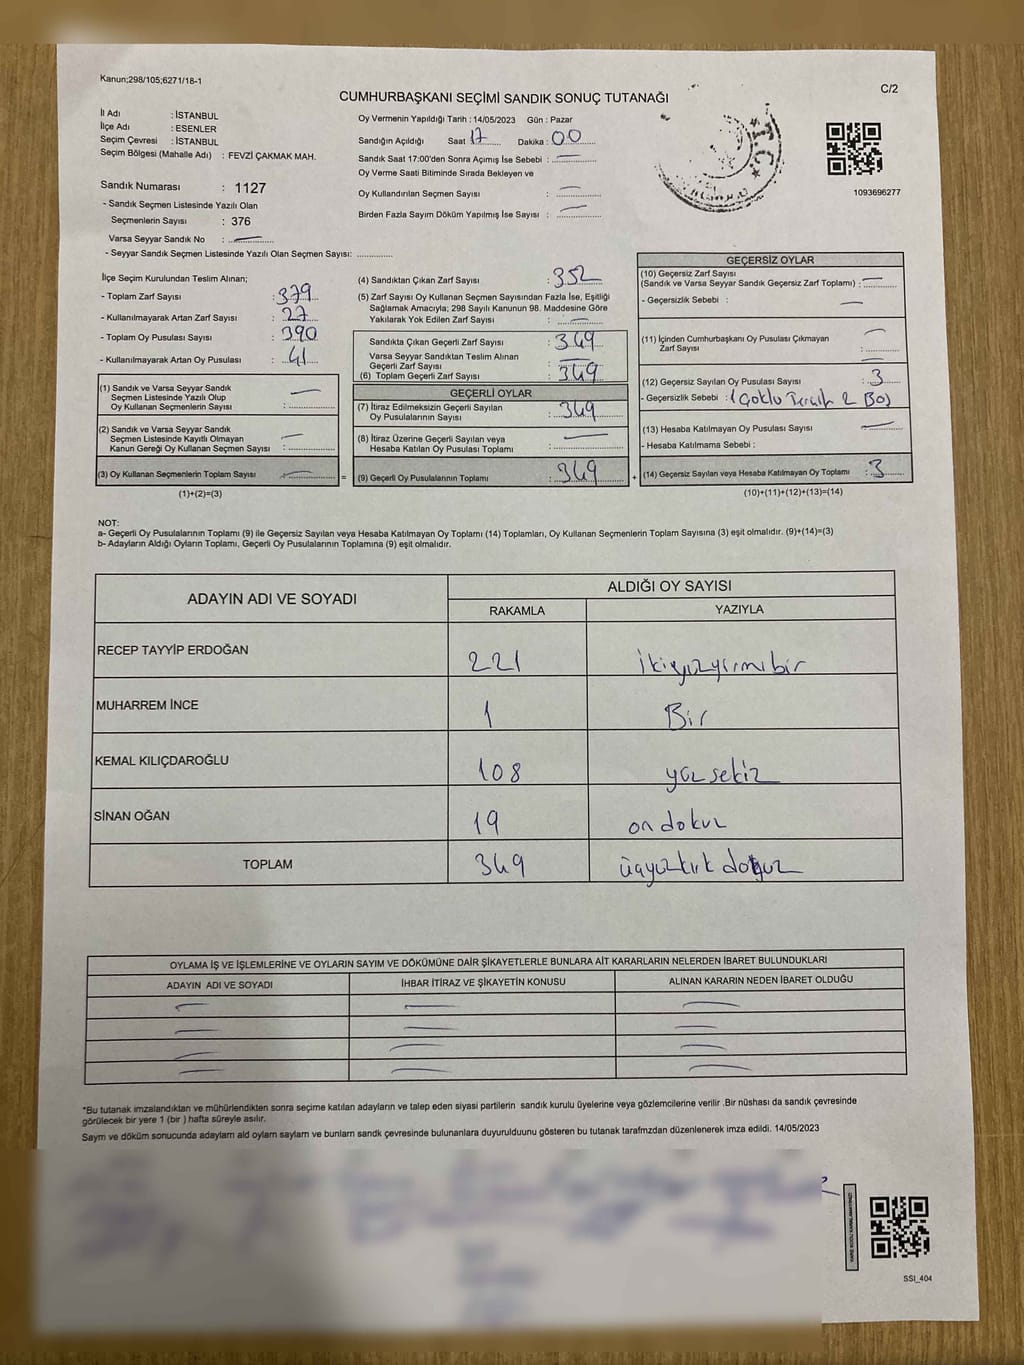 Kanun;298/105;6271/18-1
C/2
CUMHURBAŞKANI SEÇİMİ SANDIK SONUÇ TUTANAĞI
İl Adı : İSTANBUL
İlçe Adı : ESENLER
Seçim Çevresi : İSTANBUL
Seçim Bölgesi (Mahalle Adı) : FEVZİ ÇAKMAK MAH.
Sandık Numarası : 1127
- Sandık Seçmen Listesinde Yazılı Olan
Seçmenlerin Sayısı : 376
Varsa Seyyar Sandık No :
- Seyyar Sandık Seçmen Listesinde Yazılı Olan Seçmen Sayısı:
Oy Vermenin Yapıldığı Tarih : 14/05/2023 Gün : Pazar
Sandığın Açıldığı Saat 17 Dakika : 00
Sandık Saat 17:00'den Sonra Açımış İse Sebebi :
Oy Verme Saati Bitiminde Sırada Bekleyen ve
Oy Kullandırılan Seçmen Sayısı :
Birden Fazla Sayım Döküm Yapılmış İse Sayısı :
T.C.
1093696277
İlçe Seçim Kurulundan Teslim Alınan;
- Toplam Zarf Sayısı : 379
- Kullanılmayarak Artan Zarf Sayısı : 27
- Toplam Oy Pusulası Sayısı : 390
- Kullanılmayarak Artan Oy Pusulası : 41
(1) Sandık ve Varsa Seyyar Sandık
Seçmen Listesinde Yazılı Olup
Oy Kullanan Seçmenlerin Sayısı :
(2) Sandık ve Varsa Seyyar Sandık
Seçmen Listesinde Kayıtlı Olmayan
Kanun Gereği Oy Kullanan Seçmen Sayısı :
(3) Oy Kullanan Seçmenlerin Toplam Sayısı :
(1)+(2)=(3)
=
(4) Sandıktan Çıkan Zarf Sayısı : 352
(5) Zarf Sayısı Oy Kullanan Seçmen Sayısından Fazla İse, Eşitliği
Sağlamak Amacıyla; 298 Sayılı Kanunun 98. Maddesine Göre
Yakılarak Yok Edilen Zarf Sayısı :
Sandıkta Çıkan Geçerli Zarf Sayısı : 349
Varsa Seyyar Sandıktan Teslim Alınan
Geçerli Zarf Sayısı :
(6) Toplam Geçerli Zarf Sayısı : 349
GEÇERLİ OYLAR
(7) İtiraz Edilmeksizin Geçerli Sayılan
Oy Pusulalarının Sayısı : 349
(8) İtiraz Üzerine Geçerli Sayılan veya
Hesaba Katılan Oy Pusulası Toplamı :
(9) Geçerli Oy Pusulalarının Toplamı : 349
+
GEÇERSİZ OYLAR
(10) Geçersiz Zarf Sayısı
(Sandık ve Varsa Seyyar Sandık Geçersiz Zarf Toplamı) :
- Geçersizlik Sebebi :
(11) İçinden Cumhurbaşkanı Oy Pusulası Çıkmayan
Zarf Sayısı :
(12) Geçersiz Sayılan Oy Pusulası Sayısı : 3
- Geçersizlik Sebebi : 1 Çoklu Tercih 2 Boş
(13) Hesaba Katılmayan Oy Pusulası Sayısı :
- Hesaba Katılmama Sebebi :
(14) Geçersiz Sayılan veya Hesaba Katılmayan Oy Toplamı : 3
(10)+(11)+(12)+(13)=(14)
NOT:
a- Geçerli Oy Pusulalarının Toplamı (9) ile Geçersiz Sayılan veya Hesaba Katılmayan Oy Toplamı (14) Toplamları, Oy Kullanan Seçmenlerin Toplam Sayısına (3) eşit olmalıdır. (9)+(14)=(3)
b- Adayların Aldığı Oyların Toplamı, Geçerli Oy Pusulalarının Toplamına (9) eşit olmalıdır.
ADAYIN ADI VE SOYADI
ALDIĞI OY SAYISI
RAKAMLA YAZIYLA
RECEP TAYYİP ERDOĞAN 221 ikiyüzyirmibir
MUHARREM İNCE 1 Bir
KEMAL KILIÇDAROĞLU 108 yüzsekiz
SİNAN OĞAN 19 ondokuz
TOPLAM 349 üçyüzkırkdokuz
OYLAMA İŞ VE İŞLEMLERİNE VE OYLARIN SAYIM VE DÖKÜMÜNE DAİR ŞİKAYETLERLE BUNLARA AİT KARARLARIN NELERDEN İBARET BULUNDUKLARI
ADAYIN ADI VE SOYADI İHBAR İTİRAZ VE ŞİKAYETİN KONUSU ALINAN KARARIN NEDEN İBARET OLDUĞU
*Bu tutanak imzalandıktan ve mühürlendikten sonra seçime katılan adayların ve talep eden siyasi partilerin sandık kurulu üyelerine veya gözlemcilerine verilir .Bir nüshası da sandık çevresinde
görülecek bir yere 1 (bir ) hafta süreyle asılır.
Saym ve döküm sonucunda adaylarn ald oylarn saylarn ve bunlarn sandk çevresinde bulunanlara duyurulduunu gösteren bu tutanak tarafmzdan düzenlenerek imza edildi. 14/05/2023
SSİ_404